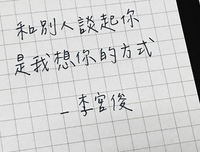 和別人談起你
是我想你的方式
-李宮俊